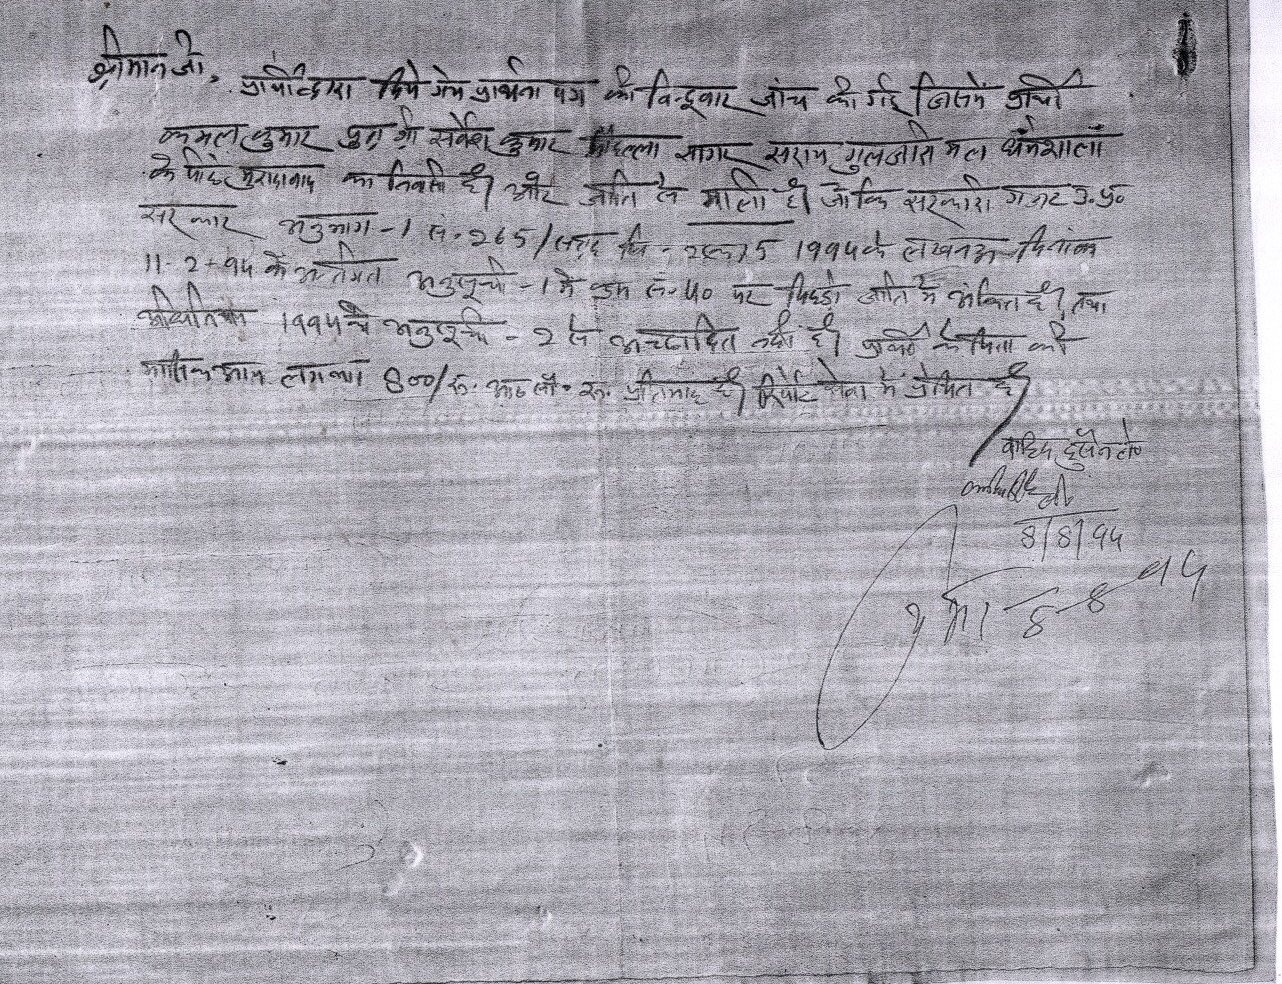 श्रीमान जी,
प्रार्थी द्वारा दिये गये प्रार्थना पत्र की बिन्दुवार जांच की गई जिसमें प्रार्थी
कमल कुमार पुत्र श्री सर्वेश कुमार मौहल्ला सागर सराय गुलजारी मल धर्मशाला
के पीछे मुरादाबाद का निवासी है। और जाति से माली है। जोकि सरकारी गजट उ.प्र.
सरकार अनुभाग - 1 सं. 265/ 1994 के लखनऊ दिनांक
11-2-94 के अन्तर्गत अनुसूची - 1 में क्रम सं. 40 पर पिछड़ी जाति में अंकित है, तथा
अधिनियम 1994 के अनुसूची - 2 से अच्छादित नहीं है। प्रार्थी के पिता की
मासिक आय लगभग 800/रु. आठ सौ रु. प्रतिमाह है। रिपोर्ट सेवा में प्रेषित है।
वाहिद हुसैन ले०
8/8/94
8-8-94